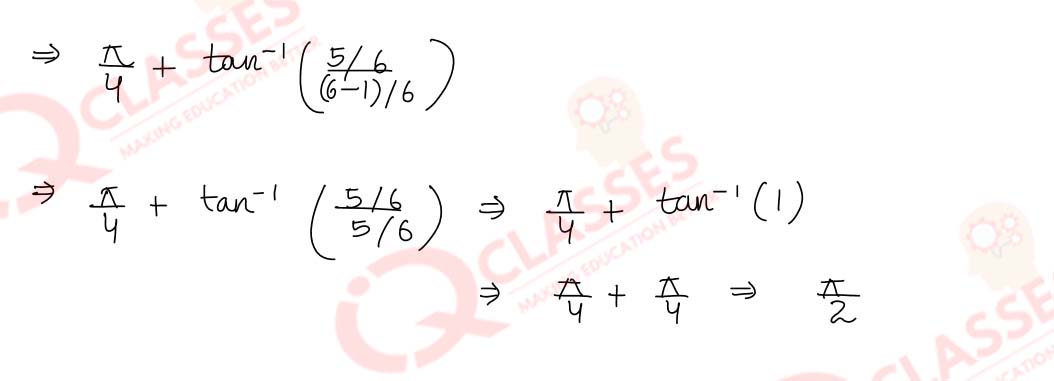 ⇒ π/4 + tan⁻¹ ( (5/6) / ((6-1)/6) )
⇒ π/4 + tan⁻¹ ( (5/6) / (5/6) ) ⇒ π/4 + tan⁻¹(1)
⇒ π/4 + π/4 ⇒ π/2
CLASSES
MAKING EDUCATION
CLASSES
MAKING EDUCATION
LASSE